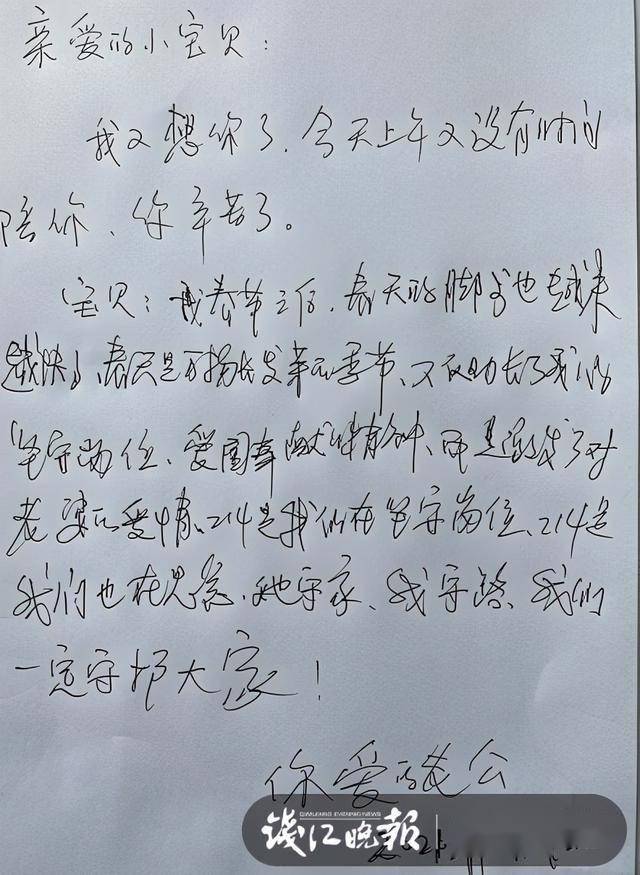 亲爱的小宝贝：
我又想你了，今天上午又没有时间
陪你、你辛苦了。
宝贝：春节之后，春天的脚步也越来
越快了、春天是万物发芽的季节、不仅助长了我们
坚守岗位、爱国奉献精神、而且激发了对
老婆的爱情、214是我们在坚守岗位、214是
我们也在思念、她守家、我守路、我们
一定守护大家！
你爱的老公
钱江晚报
QIANJIANG EVENING NEWS